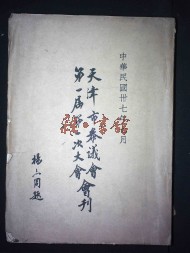 中華民國卅七年 月
天津市參議會
第一屆第 次大會會刊
楊亦周題